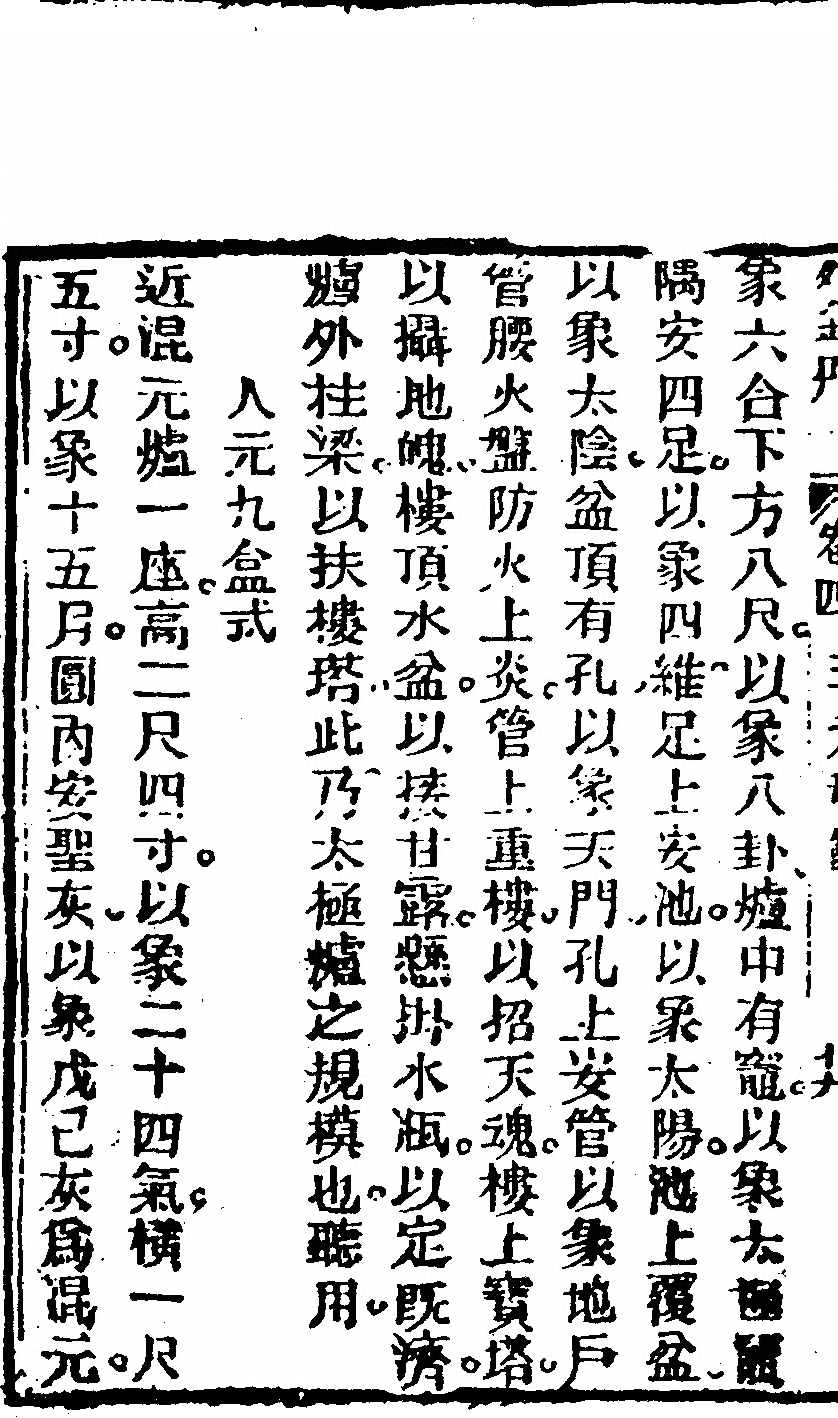 象六合下方八尺。以象八卦爐中有竈。以象太極竈
隅安四足。以象四維足上安池。以象太陽。池上覆盆
以象太陰。盆頂有孔。以象天門。孔上安管以象地戶
管腰火盤防火上炎。管上重樓。以招天魂。樓上寶塔。
以攝地魄。樓頂水盆。以接甘露。懸掛水瓶。以定既濟。
爐外柱梁。以扶樓塔。此乃太極爐之規模也。聽用。
人元九盒式
近混元爐一座。高二尺四寸。以象二十四氣。橫一尺
五寸。以象十五月。圓內安聖灰。以象戊己灰為混元。
卷四